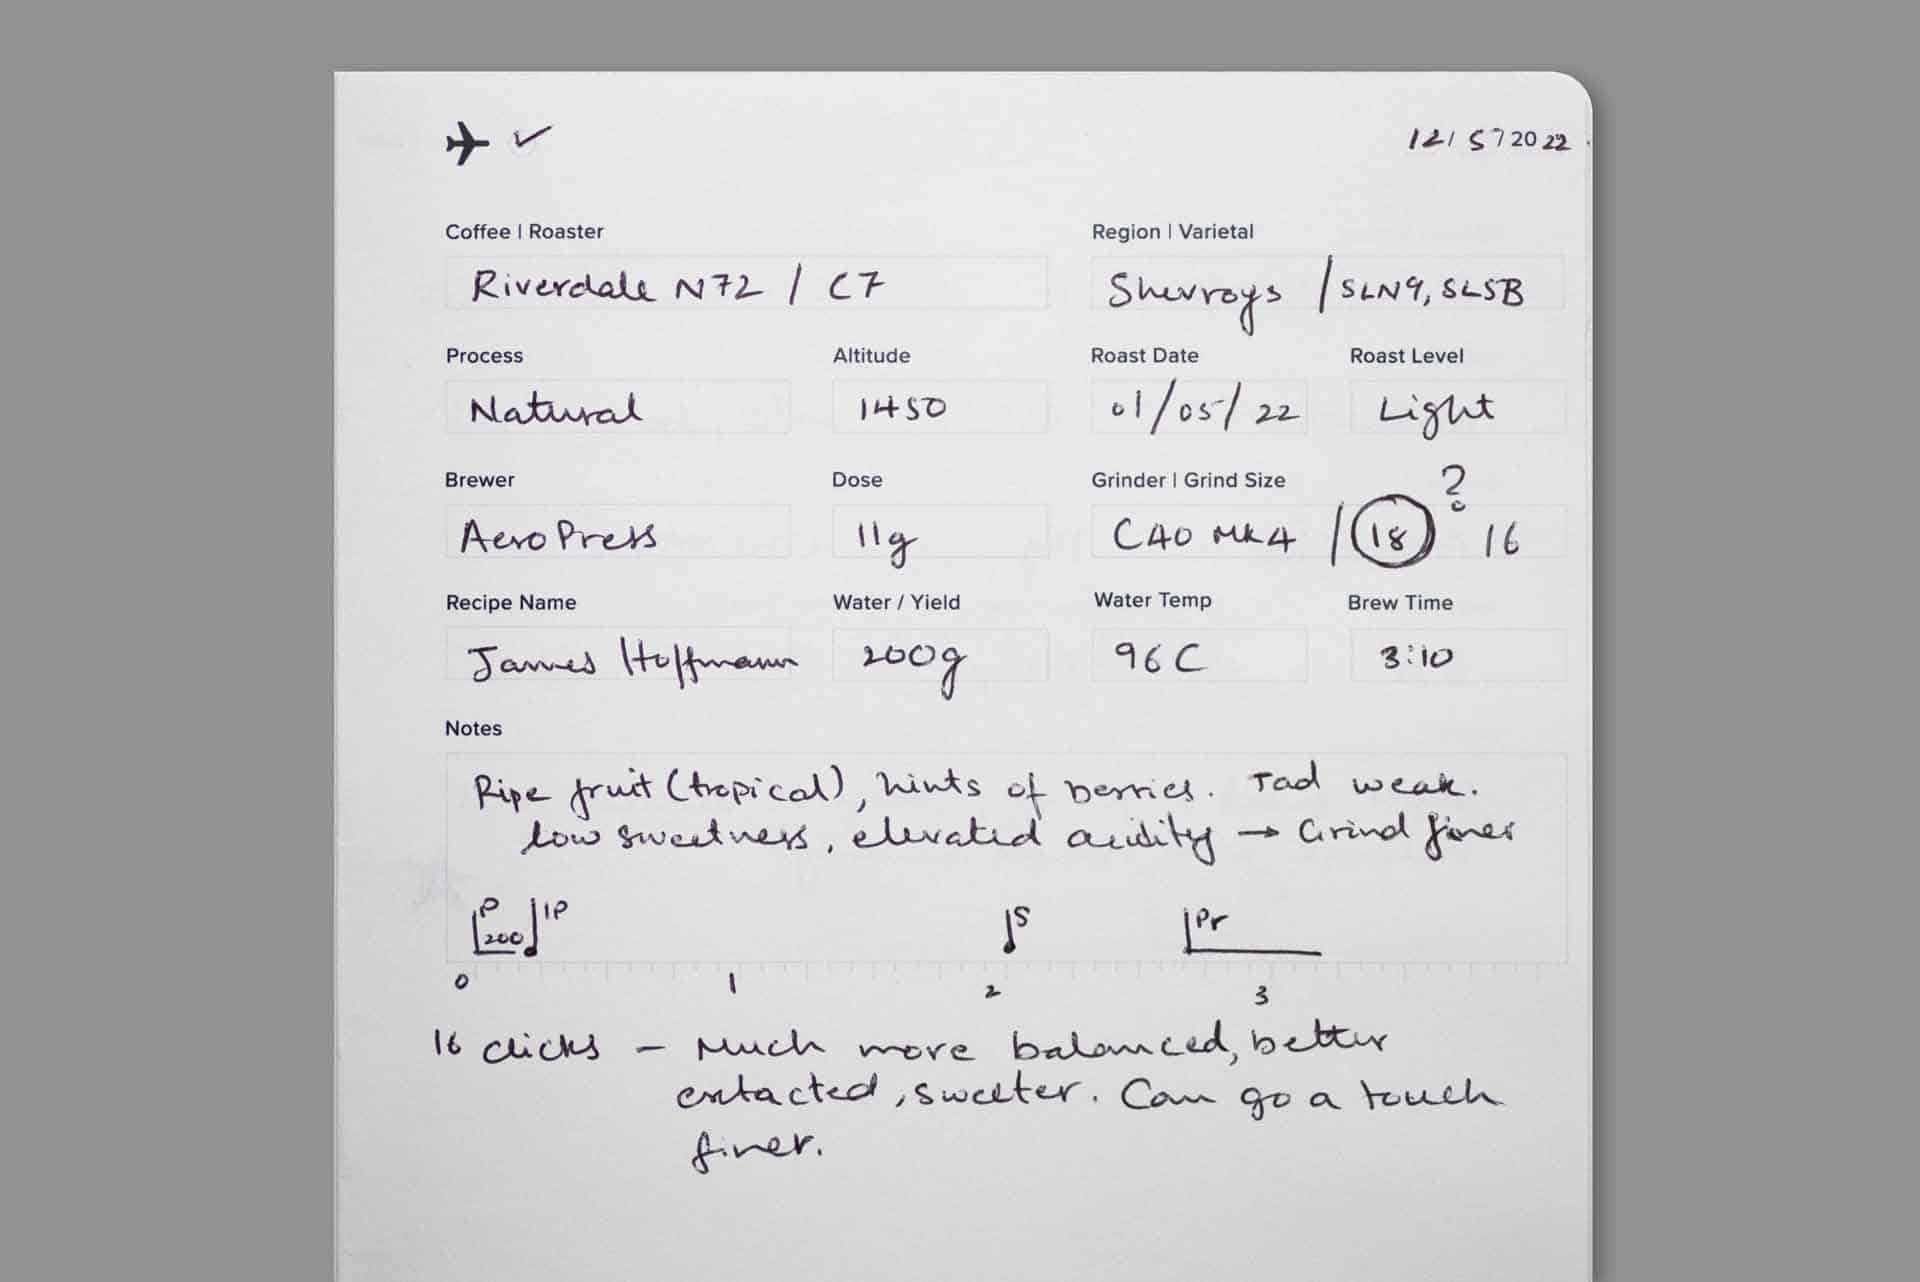 12/ 5 / 20 22
Coffee | Roaster
Region | Varietal
Riverdale N72 / C7
Shevroys / SLN9, SL5B
Process
Altitude
Roast Date
Roast Level
Natural
1450
01/05/22
Light
Brewer
Dose
Grinder | Grind Size
?
AeroPress
11g
C40 MK4 / 18
16
Recipe Name
Water / Yield
Water Temp
Brew Time
James Hoffmann
200g
96 C
3:10
Notes
Ripe fruit (tropical), hints of berries. Tad weak.
low sweetness, elevated acidity → Grind finer
P
IP
S
Pr
200
0
1
2
3
16 clicks – Much more balanced, better
extacted, sweeter. Can go a touch
finer.